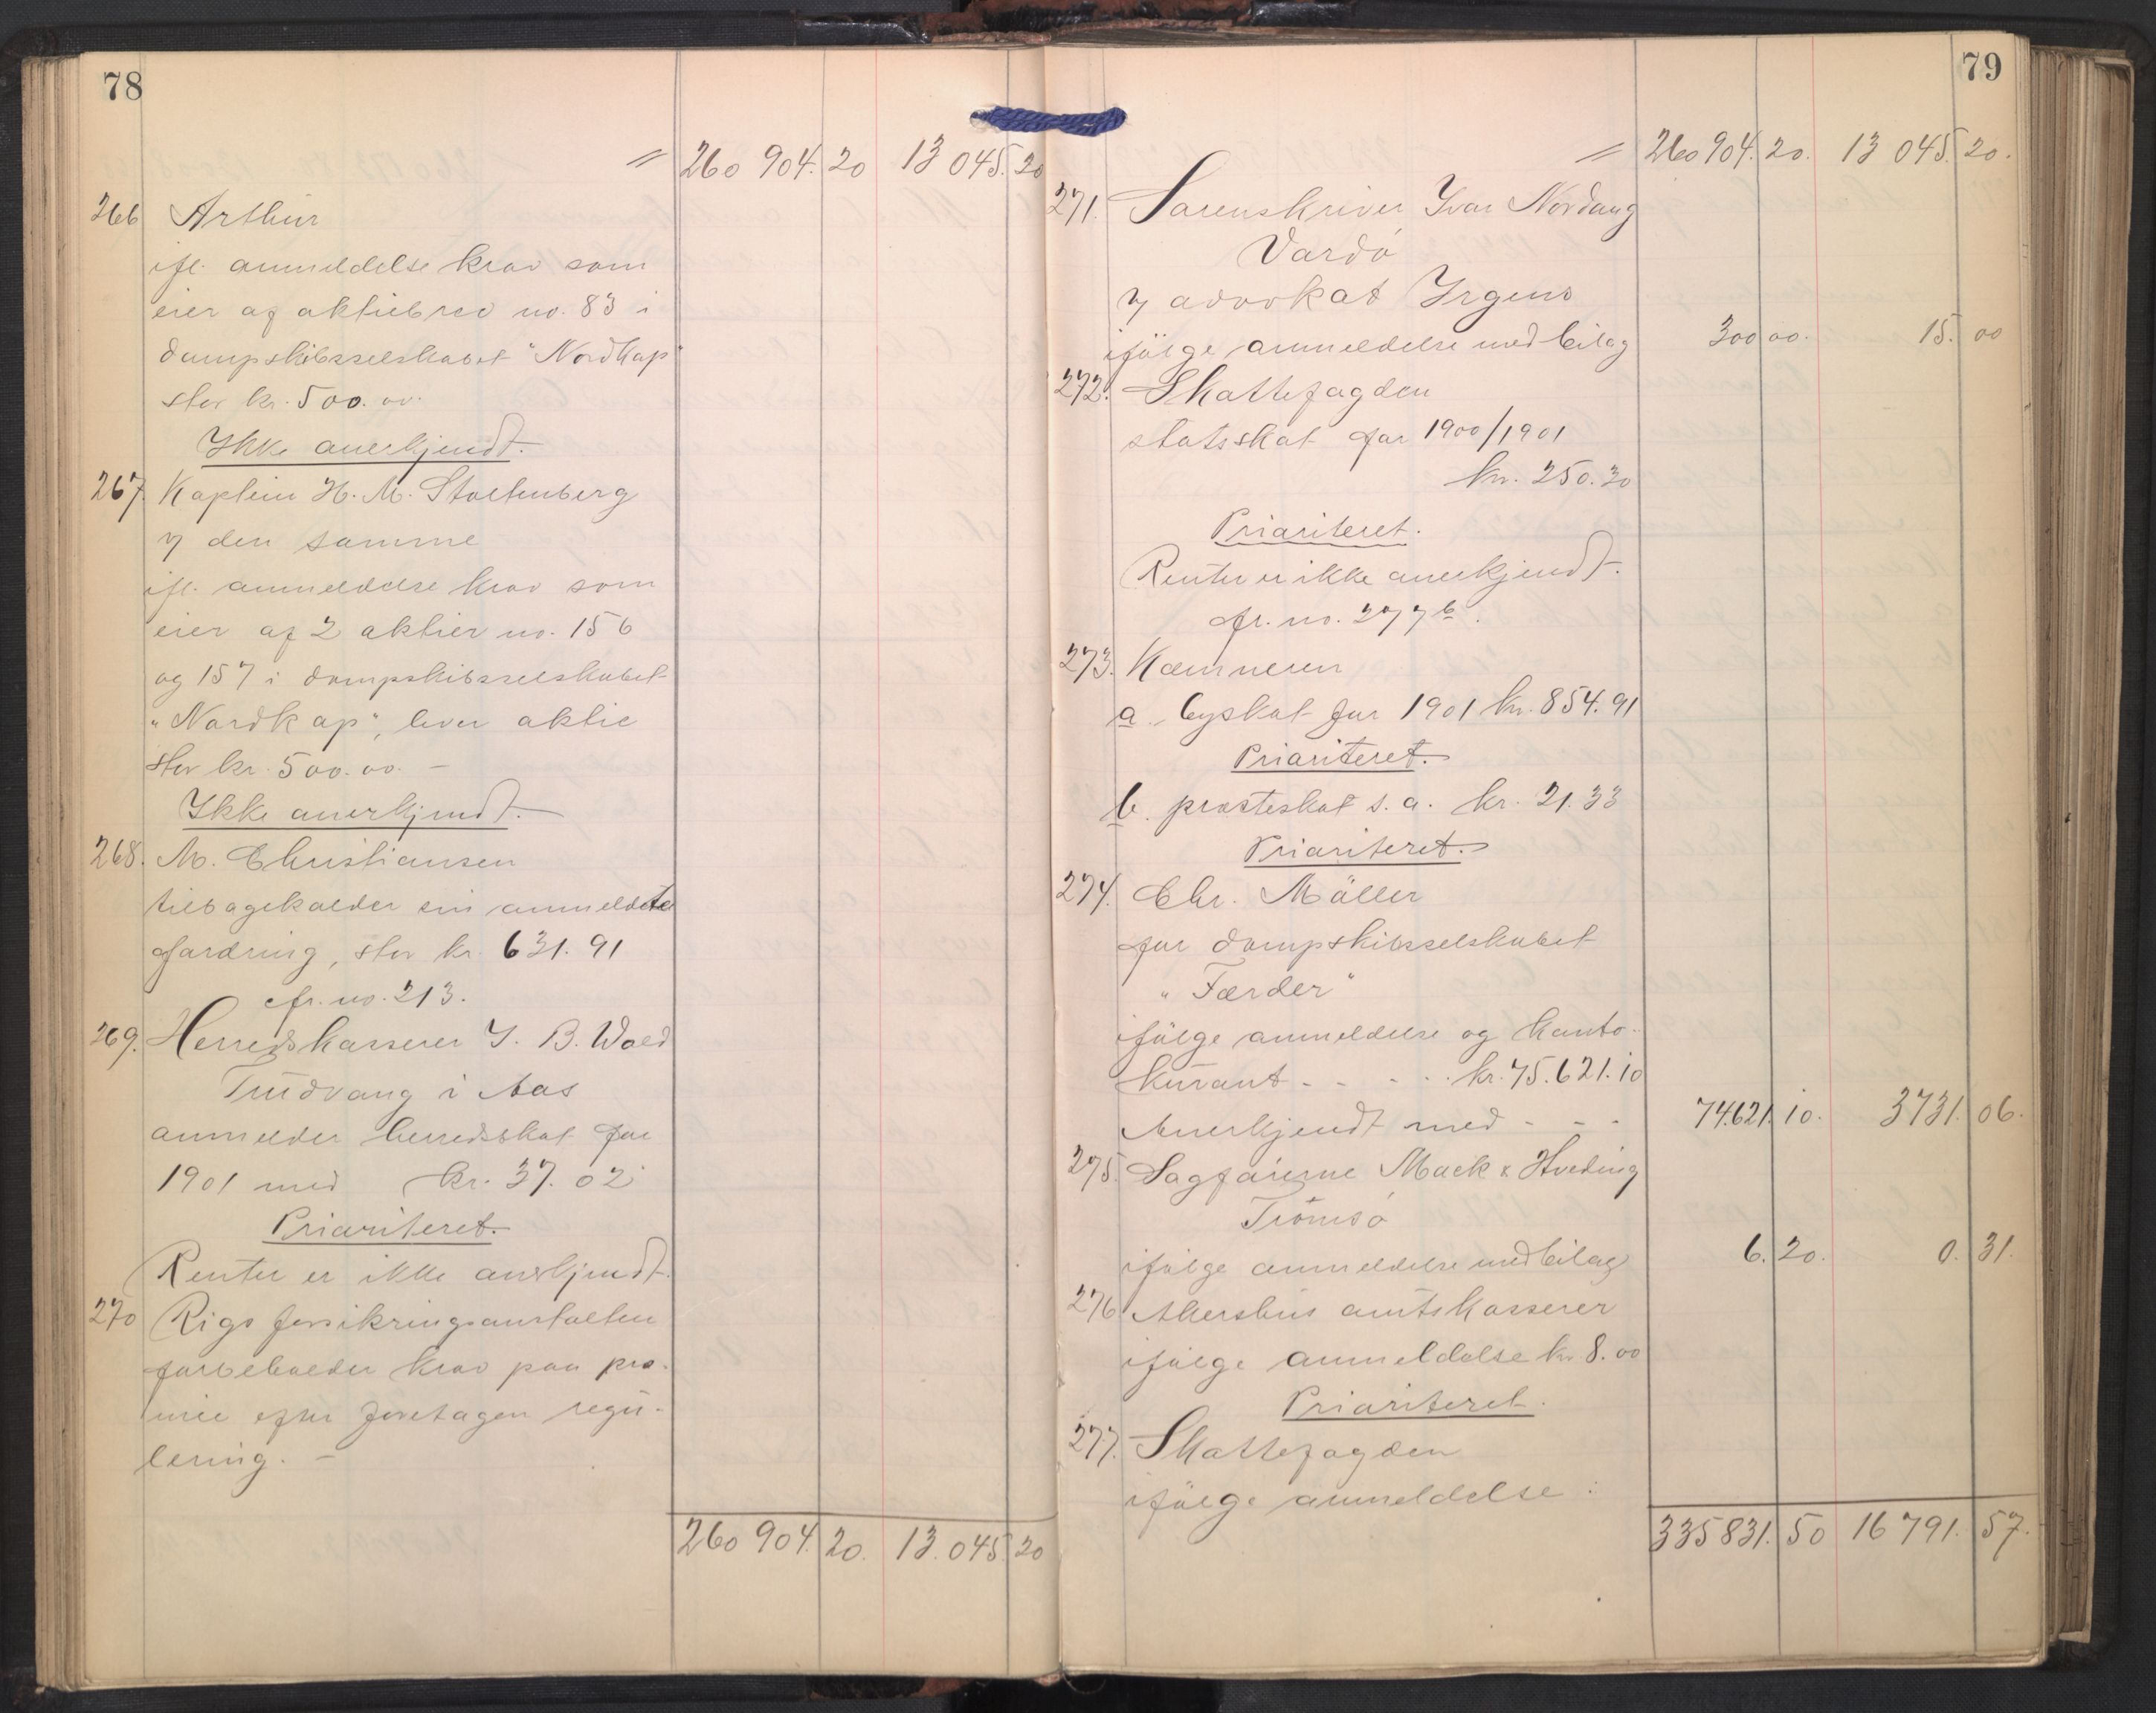 78
〃 260 904. 20 13 045. 20
266 Arthur
ifl. anmeldelse krav som
eier af aktiebrev no. 83 i
dampskibsselskabet "Nordkap"
stor kr. 500.00.
Ikke anerkjendt.
267. Kaptein H. M. Stoltenberg
v/ den samme
ifl. anmeldelse krav som
eier af 2 aktier no. 156
og 157 i dampskibsselskabet
"Nordkap", hver aktie
stor kr. 500.00. –
Ikke anerkjendt.
268. M. Christiansen
tilbagekalder sin anmeldte
fordring, stor kr. 631.91
cfr. no. 213.
269. Herredskasserer I. B. Wold
Trudvang i Aas
anmelder herredsskat for
1901 med kr. 37.02
Prioriteret.
Renter er ikke anerkjendt.
270 Riga forsikringsanstalten
forbeholder krav paa præ-
mie efter foretagen regu-
lering. –
260 904. 20. 13.045. 20
79
〃 260 904. 20. 13 045. 20.
271. Sorenskriver Ivar Nordang
Vardö
v/ advokat Irgens
ifölge anmeldelse med bilag 300 00. 15. 00
272. Skattefogden
statsskat for 1900/1901
kr. 250.30
Prioriteret.
Renter er ikke anerkjendt.
cfr. no. 277 b.
273. Kæmneren
a. byskat for 1901 kr. 854.91
Prioriteret.
b. præsteskat s. a. kr. 21.33
Prioriteret.
274. Chr. Möller
for dampskibsselskabet
"Færder"
ifölge anmeldelse og konto-
kurant - - - - . kr. 75.621.10
Anerkjendt med - - - 74.621. 10. 3731. 06.
275. Sagförerne Mack & Hveding
Tromsö
ifölge anmeldelse med bilag 6. 20. 0. 31.
276 Akershus amtskasserer
ifölge anmeldelse kr 8.00
Prioriteret.
277. Skattefogden
ifölge anmeldelse :
335 831. 50 16 791. 57.